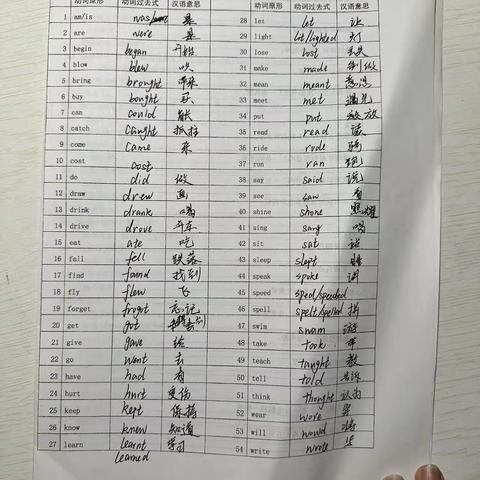 动词原形 动词过去式 汉语意思
1 am/is was
2 are were 是
3 begin began 开始
4 blow blew 吹
5 bring brought 带来
6 buy bought 买
7 can could 能
8 catch caught 抓住
9 come came 来
10 cost cost
11 do did 做
12 draw drew 画
13 drink drank 喝
14 drive drove 开车
15 eat ate 吃
16 fall fell 跌落
17 find found 找到
18 fly flew 飞
19 forget froget 忘记
20 get got
21 give gave 给
22 go went 去
23 have had 有
24 hurt hurt 受伤
25 keep kept 保持
26 know knew 知道
27 learn learnt 学习
learned
动词原形 动词过去式 汉语意思
28 let let 让
29 light lit/lighted 灯
30 lose lost 丢失
31 make made 制做
32 mean meant 意思
33 meet met 遇见
34 put put 放
35 read read 读
36 ride rode 骑
37 run ran 跑
38 say said 说
39 see saw 看
40 shine shone 照耀
41 sing sang 唱
42 sit sat
43 sleep slept 睡
44 speak spoke 讲
45 speed sped/speeded
46 spell spelt/spelled 拼
47 swim swam 游
48 take took
49 teach taught 教
50 tell told 告诉
51 think thought 认为
52 wear wore
53 will would 将
54 write wrote